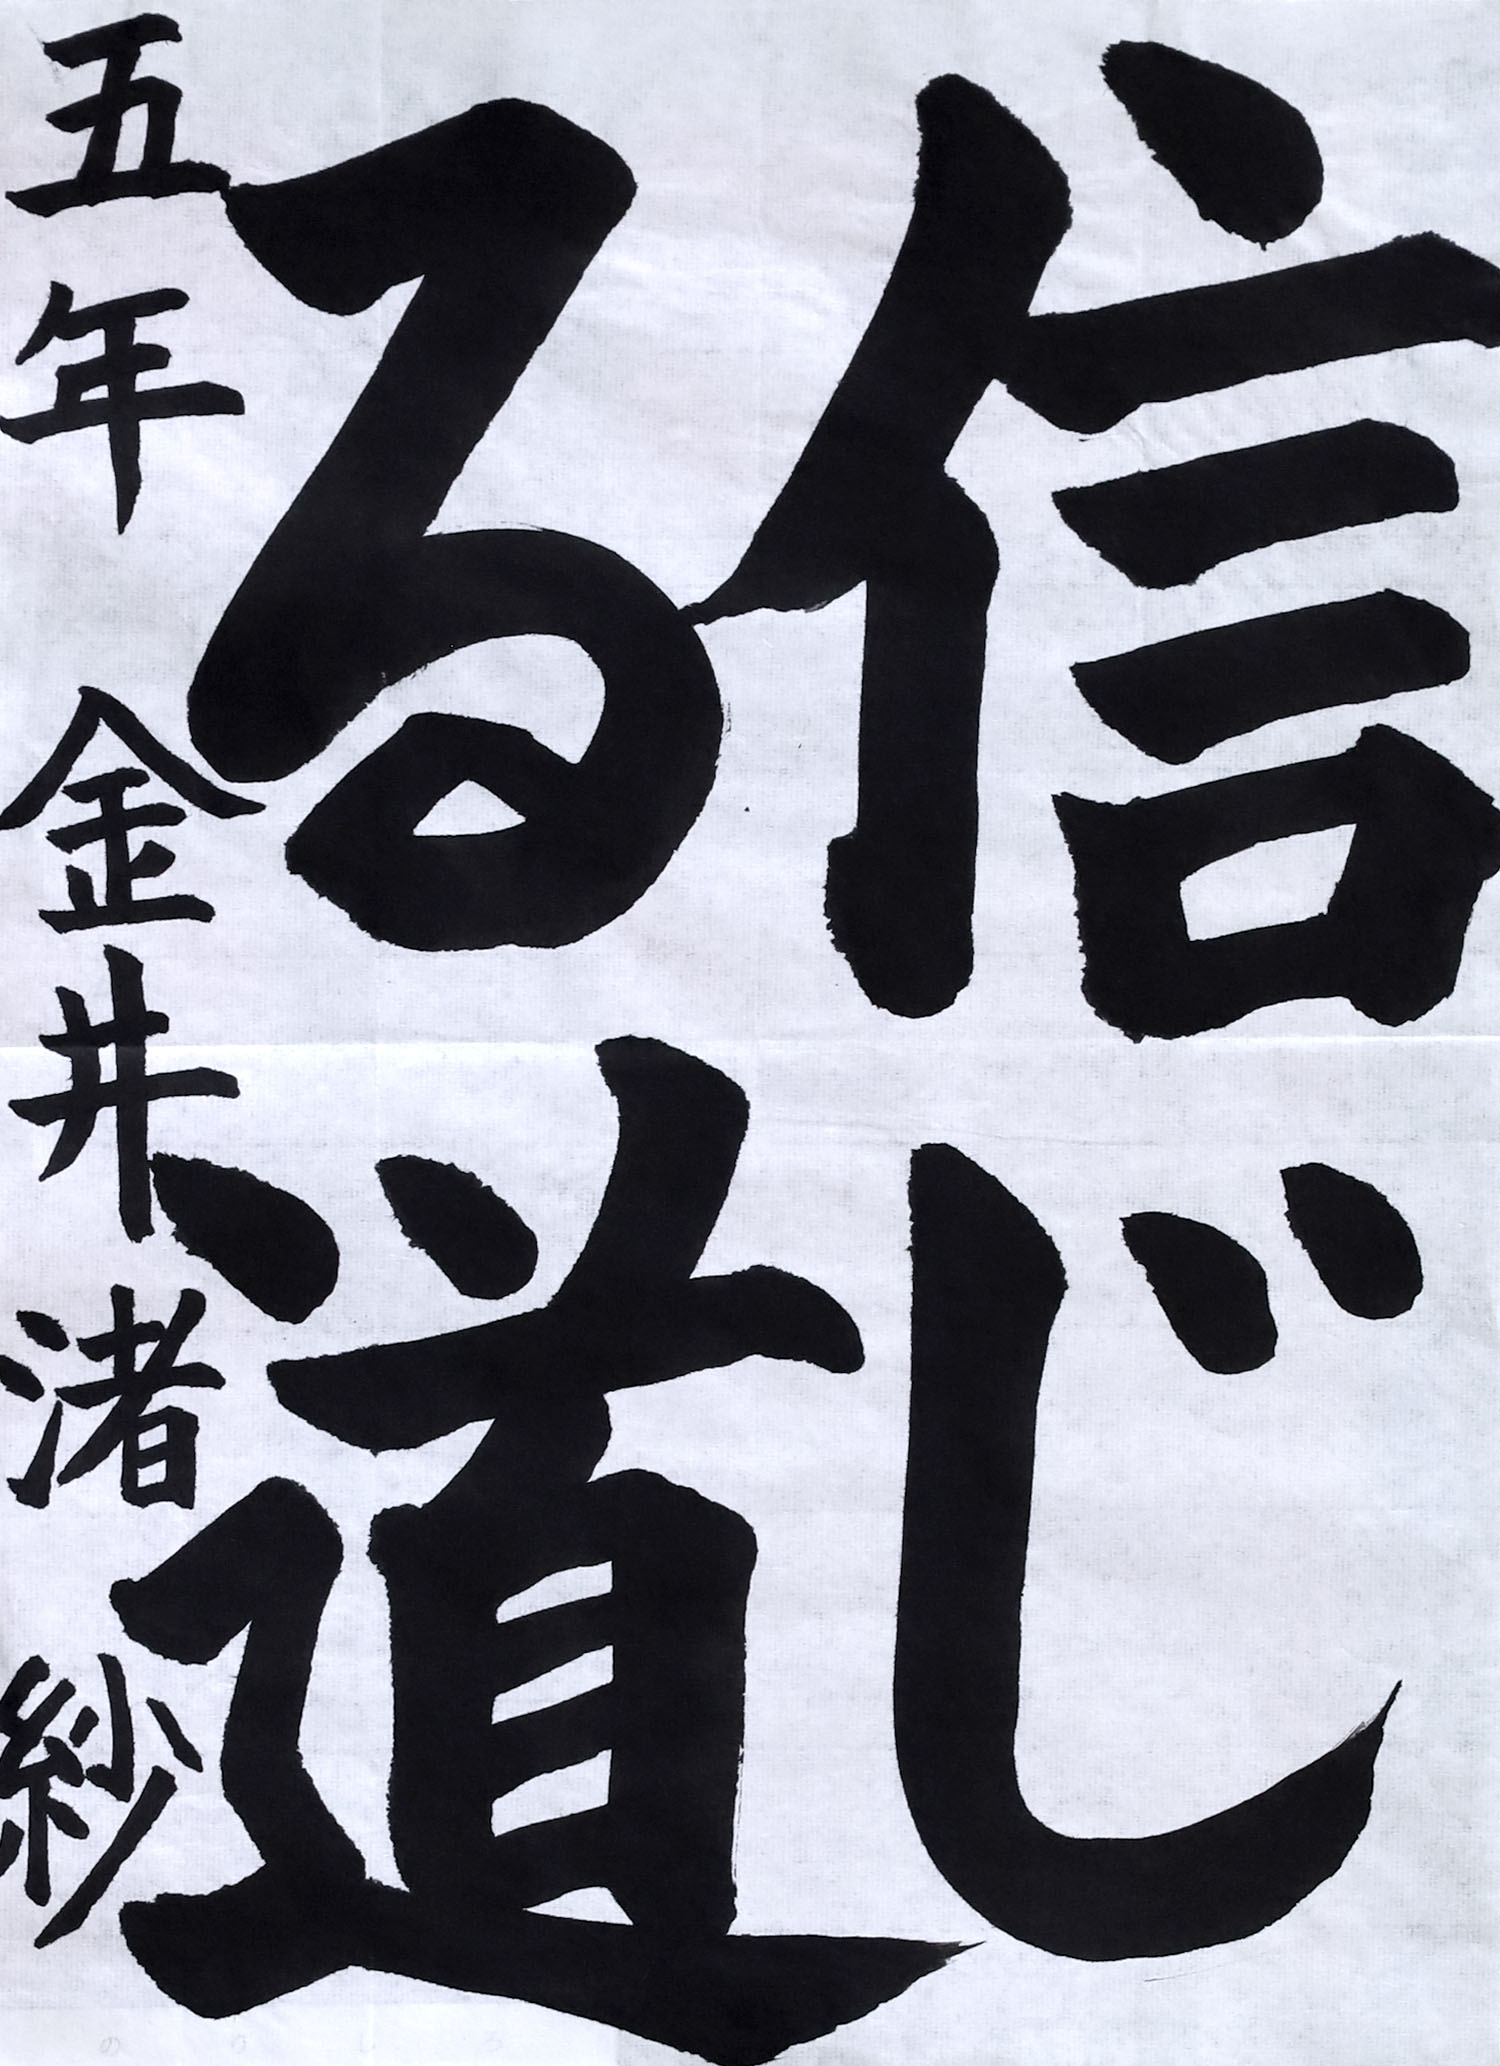 信じ
る道
五年 金井渚紗